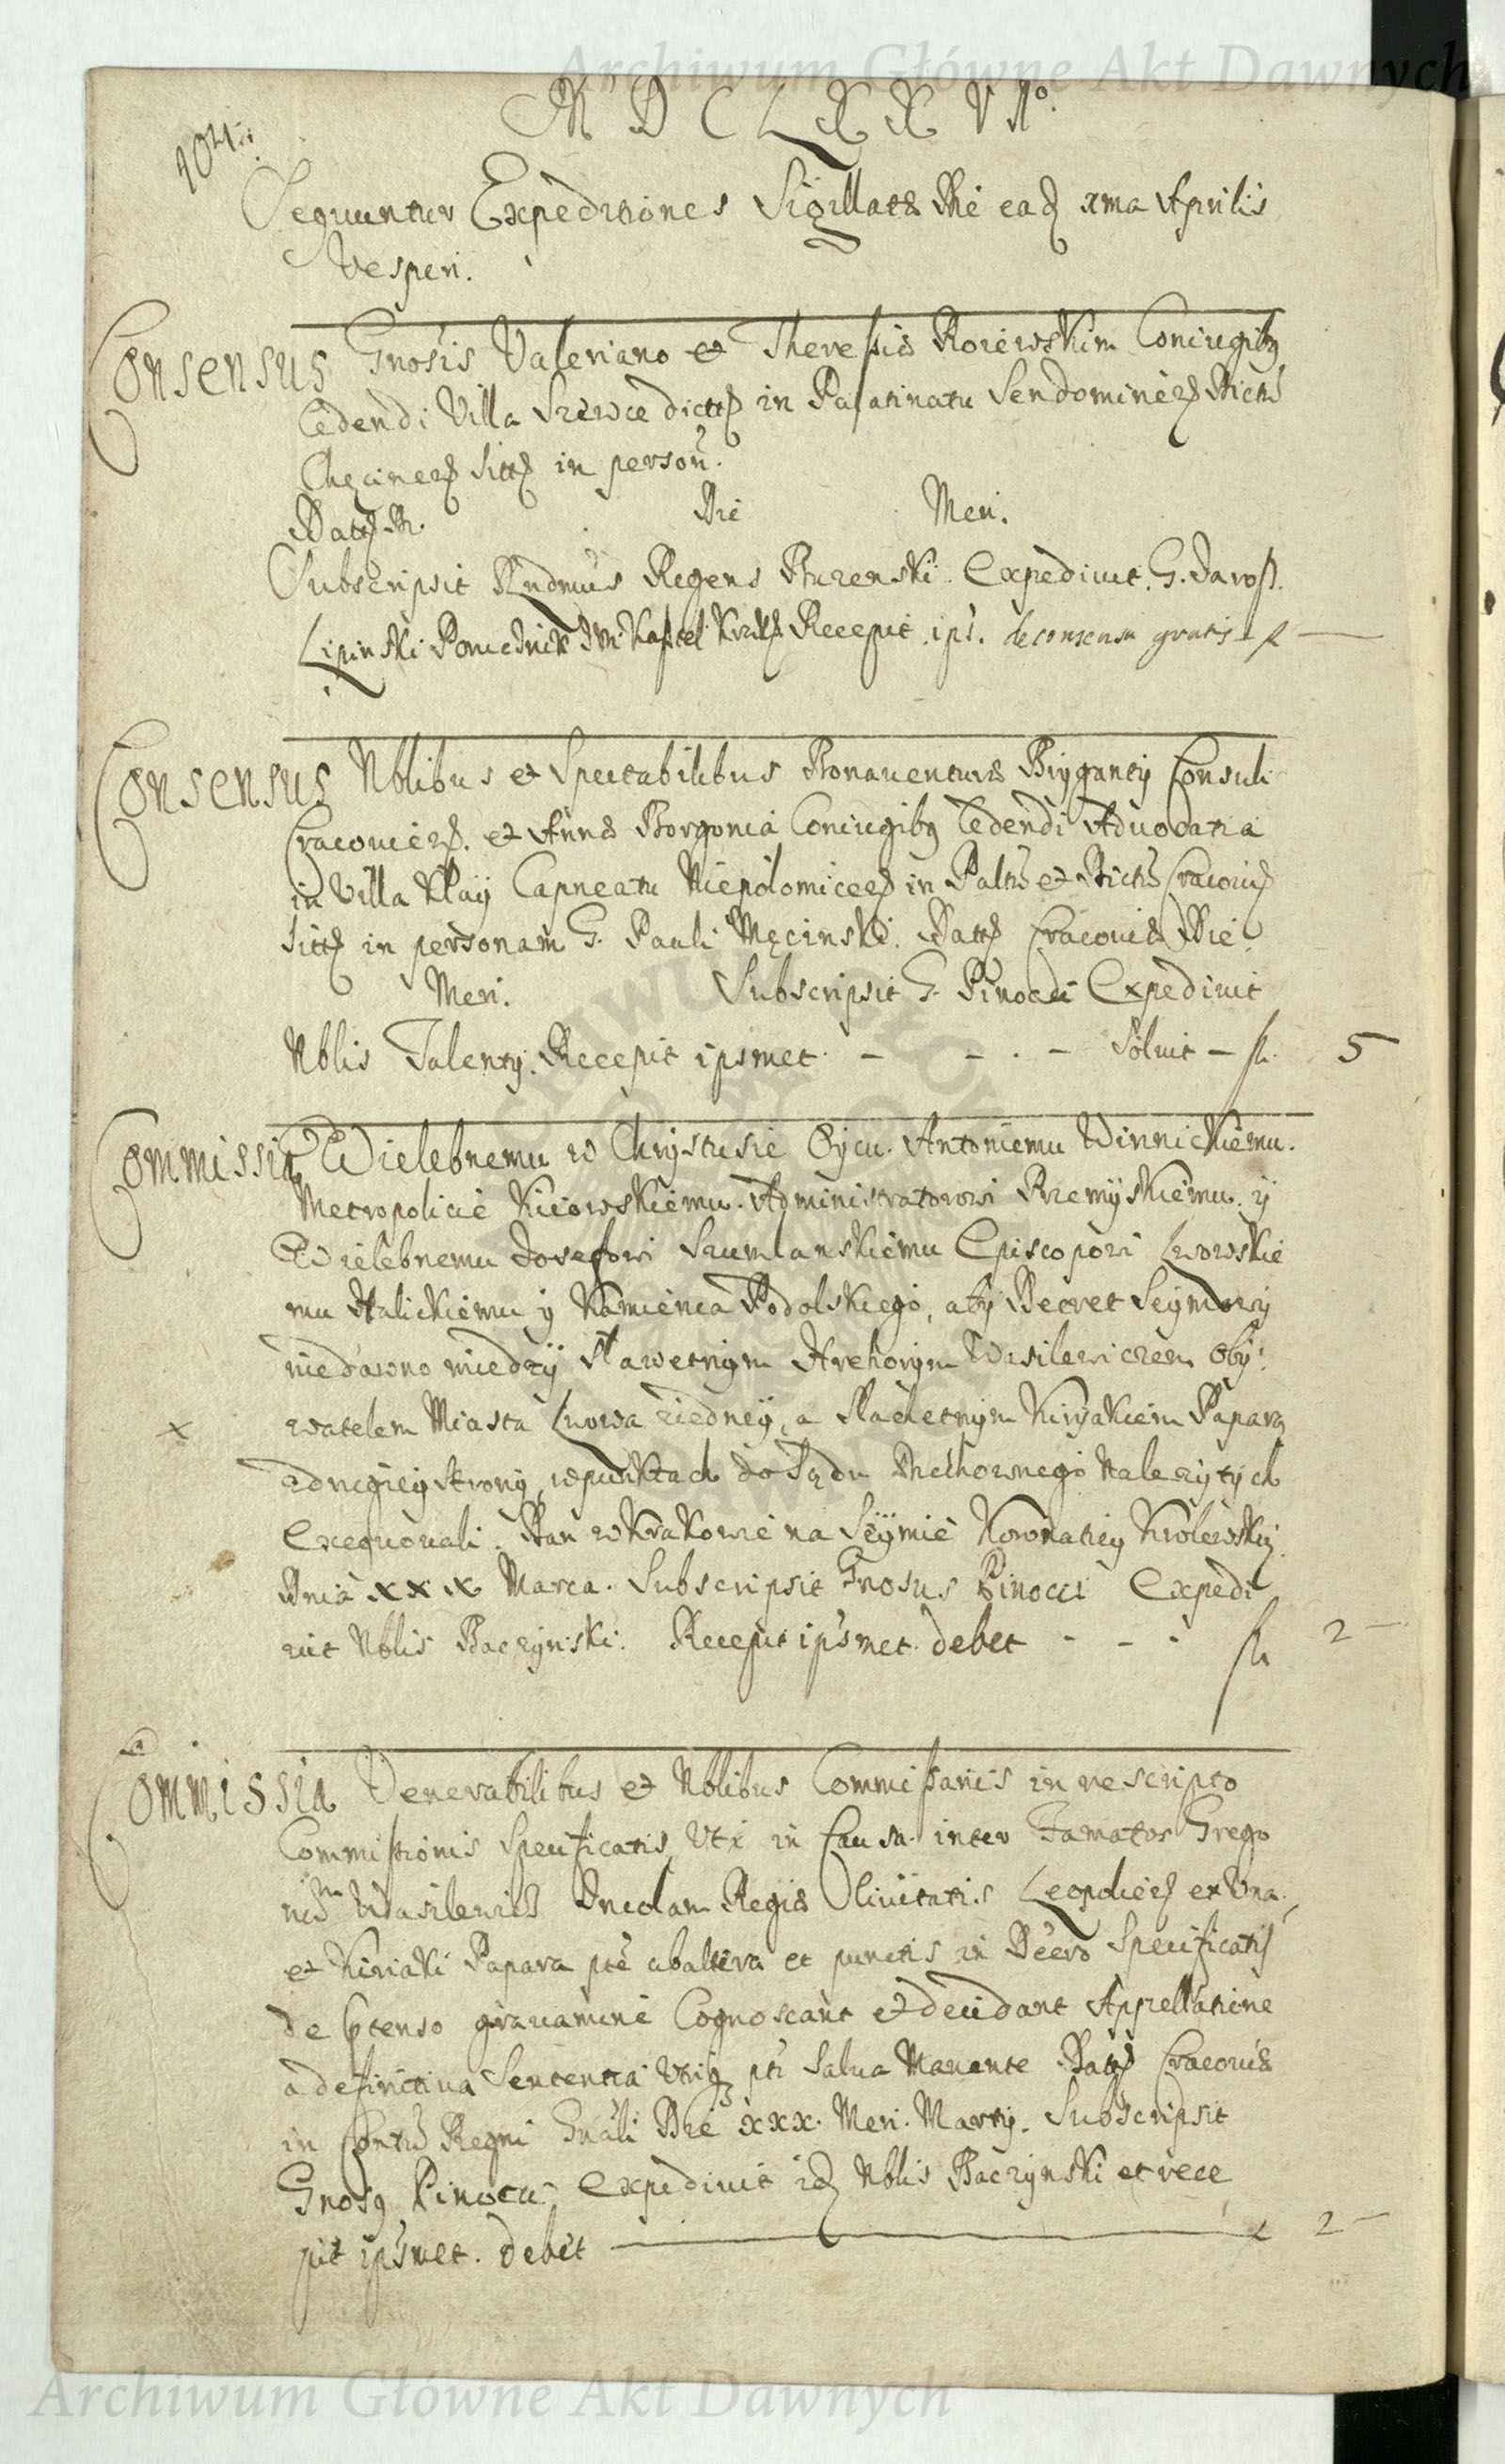 Archiwum Główne Akt Dawnych
M D C L X X V Ao.
Sequuntur Expeditiones Sigillatæ Die eadq xma Aprilis
Vesperi.
Consensus Gnosis Valeriano et Theresiæ Conciugibq
Cedendi Villa dictta in Palatinatu Sendomirieñ Dictu
Chęcineñ sitta in personã.
Datt. Die Men.
Subscripsit Rndmus Regens Expediuit. G. Jarosz.
Lipinski Recepit ips. de consensu gratis fl —
Consensus Nblibus et Spectabilibus Bonauenturæ Consuli
Cracouieñ. et Annæ Coniugibq Cedendi Aduocatia
in Villa Kłay Capneatu Niepolomiceñ in Paltu et Dictu Cracouieñ
sitta in personam G. Pauli Męcinski. Datt Cracouiæ Die.
Men. Subscripsit G. Pinocci Expediuit
Nblis Talenty. Recepit ipsmet. - - . - Soluit - fl. 5
Commissia Wielebnemu w Chrystusie Oycu. Antoniemu Winnickiemu.
Metropolicie Kiiowskiemu. Administratorowi Przemyskiemu. y
Wielebnemu Josefowi Szumlanskiemu Episcopowi Lwowskie
mu Halickiemu y Kamienca Podolskiego, aby Decret Seymowy
niedawno miedzÿ Sławetnym Hrehorym Wasilewiczem Obÿ
watelem Miasta Lwowa ziedneÿ, a Szlachetnym Kiryakiem Papara
zdrugiey strony, wpunktach do Sądu Duchownego Nalezytych
Exequowali. Dan w Krakowie na Seÿmie Koronatiey Krolewskiey
Dnia xxx Marca. Subscripsit Gnosus Pinocci Expedi
uit Nblis Baczynski. Recepit ipsmet. debet - - - fl 2 -
Commissia Venerabilibus et Nblibus Commissariis in rescripto
Commissionis Specificatis Vti in Causa inter Famatos Grego
rium Wasilewicz Incolam Regiæ Ciuitatis Leopolieñ ex Vna.
et Kiriaki Papara pte abaltera et punctis in Decro Specificatis
de gravamine Cognoscant et decidant Appellatione
a definitiua Sententia Vtriq pti Salua Manente Datt Cracouiæ
in Contu Regni Gnali Die xxx. Men. Marty. Subscripsit
Gnosq Pinocci, Expediuit idq Nblis Baczynski et rece
pit ipsmet. debet — fl 2 -
Archiwum Główne Akt Dawnych